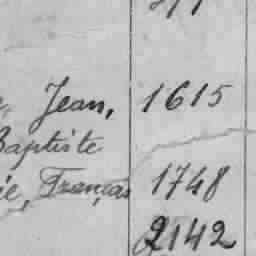 Jean, 1615
Baptiste
ie, Français 1748
2142